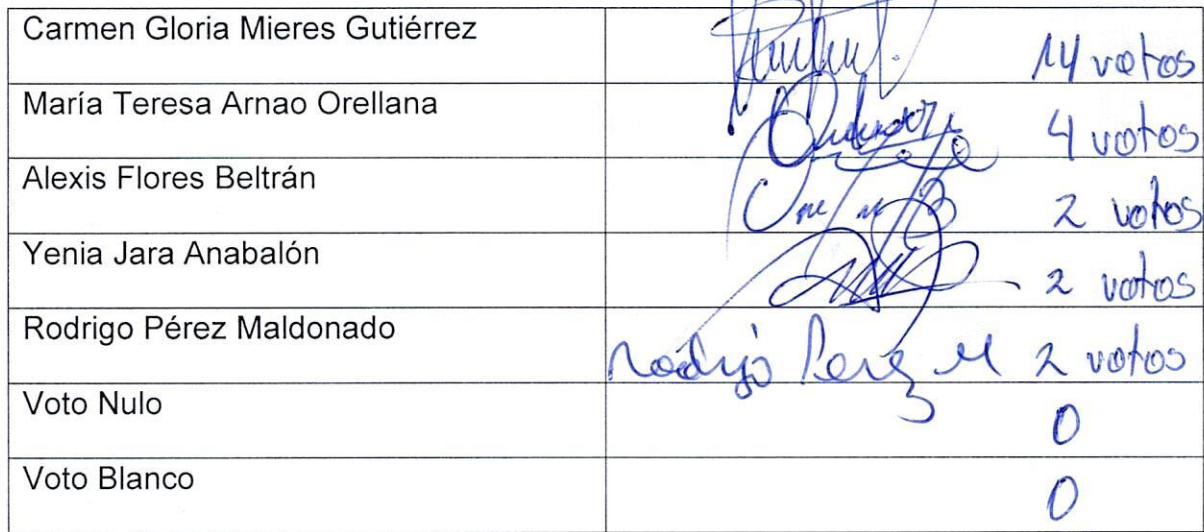 Carmen Gloria Mieres Gutiérrez 14 votos
María Teresa Arnao Orellana 4 votos
Alexis Flores Beltrán 2 votos
Yenia Jara Anabalón 2 votos
Rodrigo Pérez Maldonado Rodrigo Perez M 2 votos
Voto Nulo 0
Voto Blanco 0